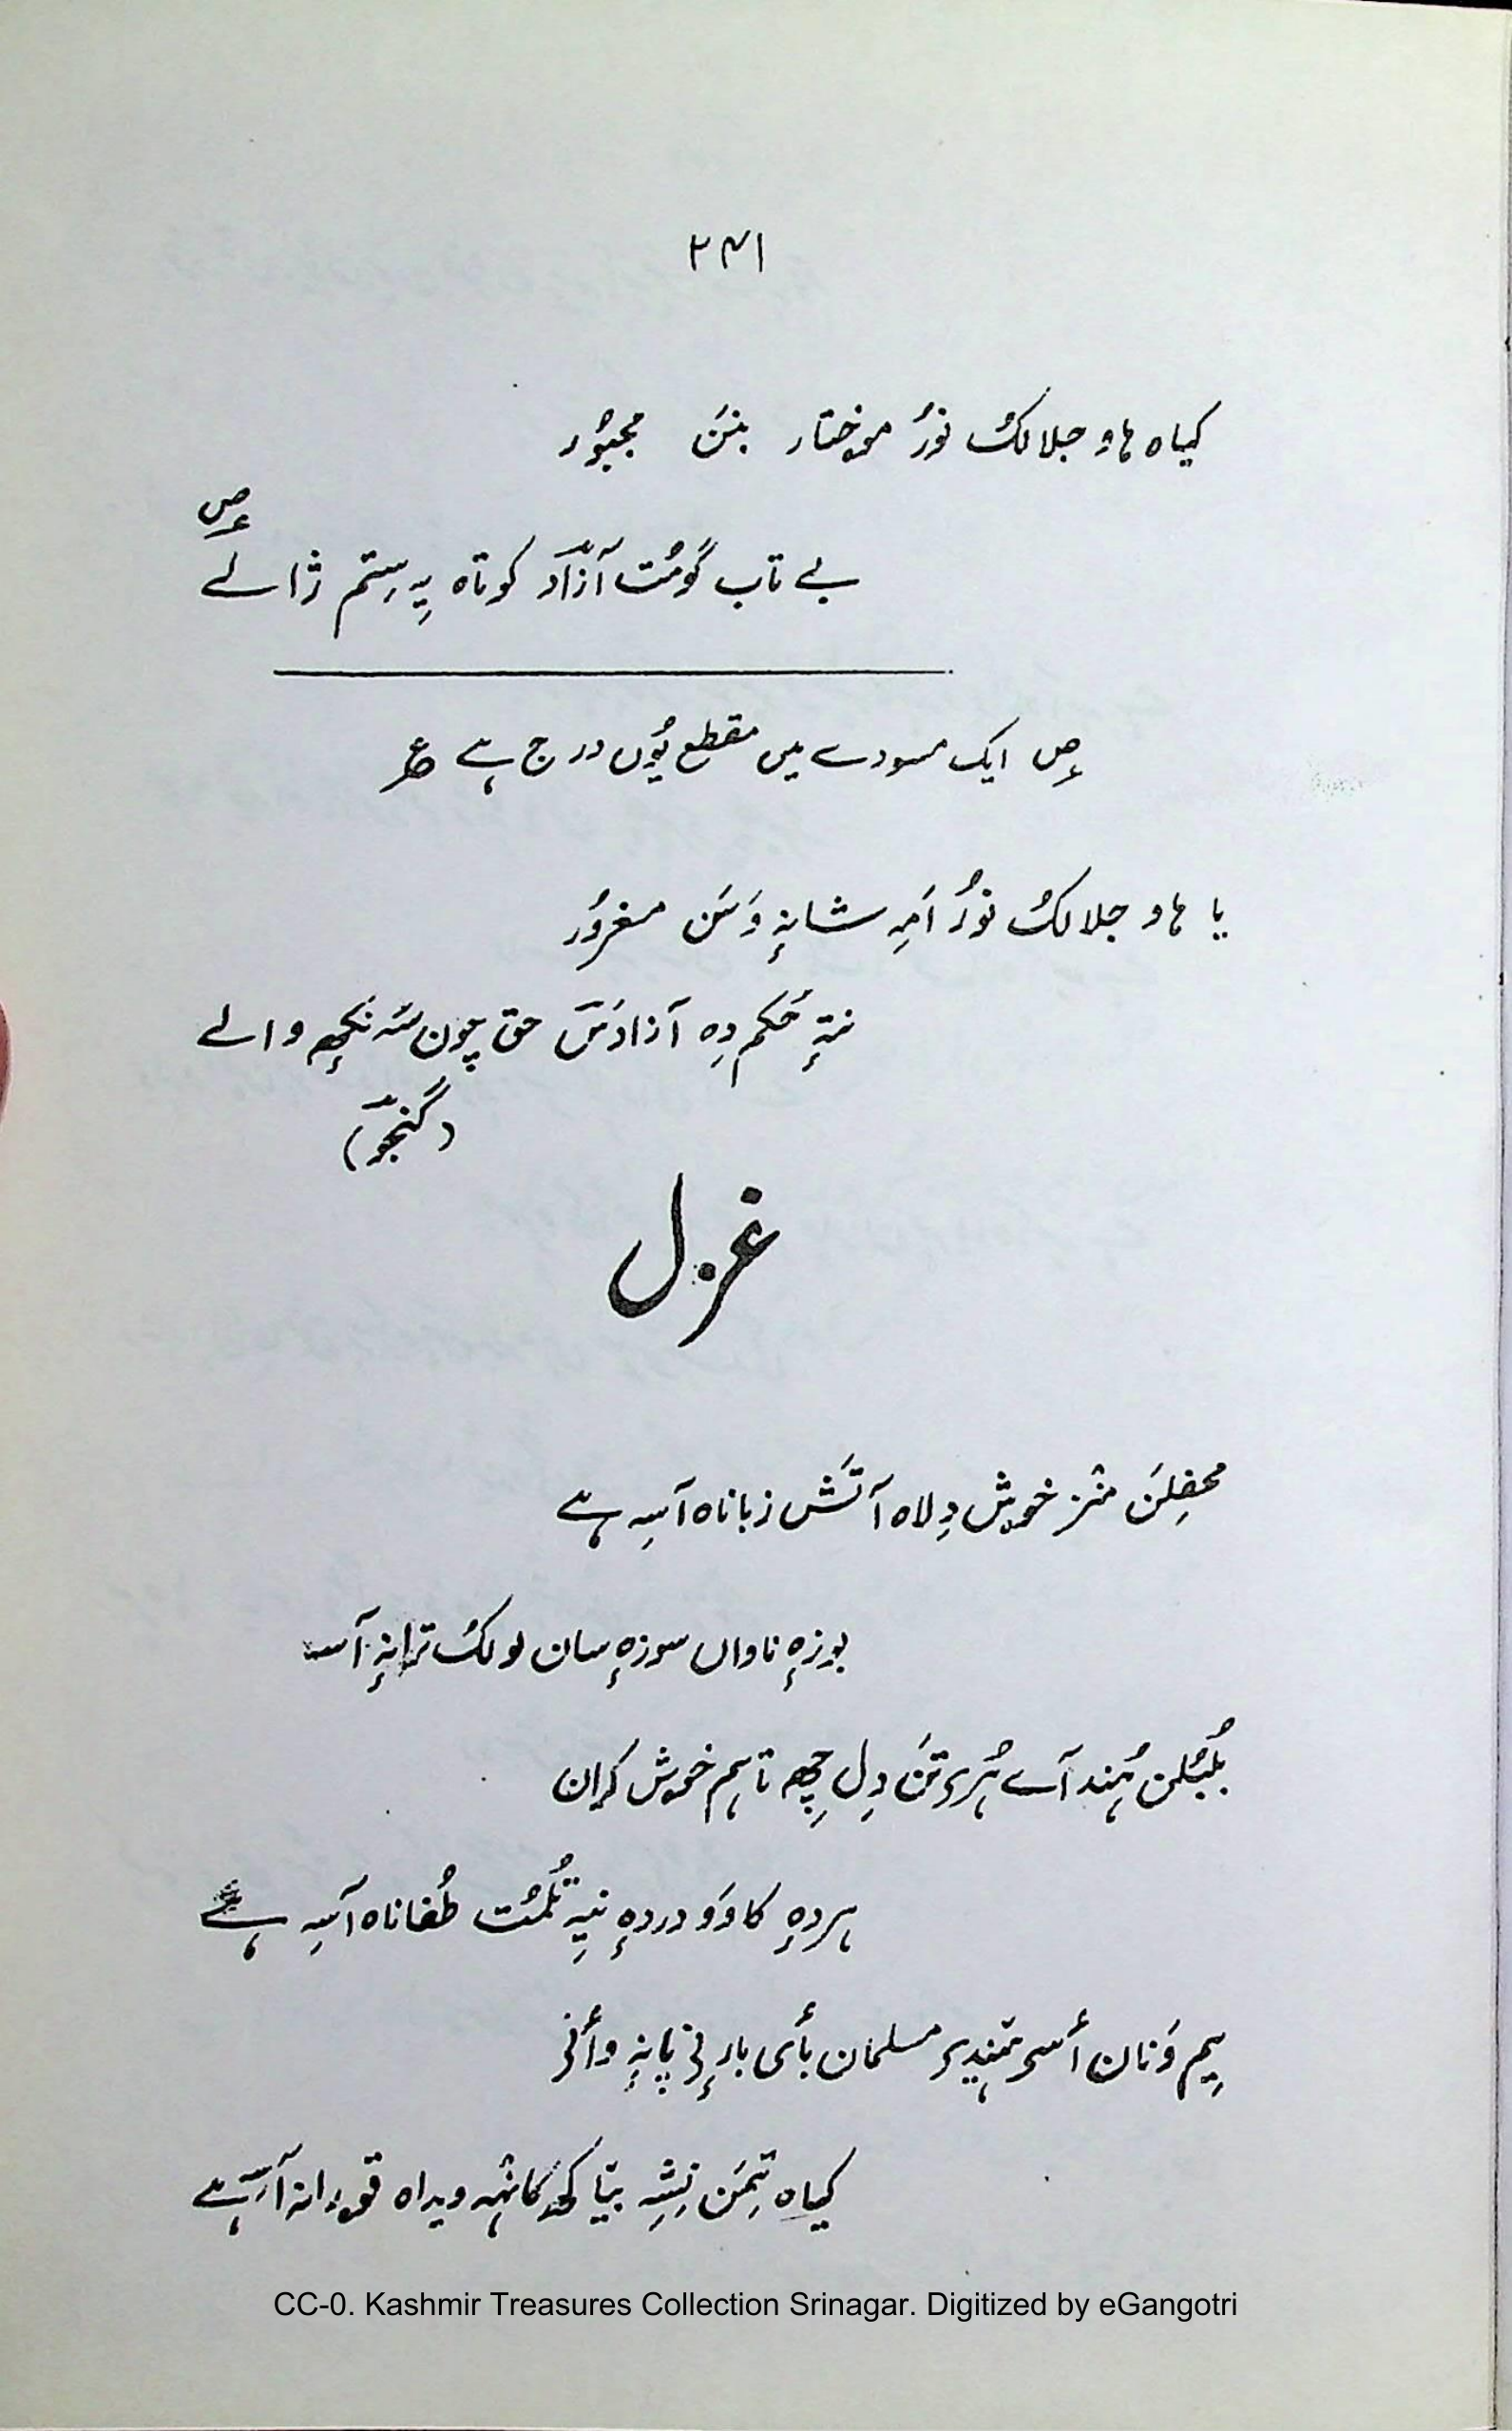 ۲۴۱
کیاہ ہاو جلالکُ نوٗرُ موختار بنَن مجبوٗر
ؐ
بے تاب گومُت آزاد کوتاہ یہِ سِتم ژالے
ؐ ایک مسودے میں مقطع یُوں درج ہے ؏
یا ہاو جلالکُ نوٗرُ اَمہِ شانہٕ وَسَن مغروٗر
نتہٕ حُکم دِہ آزادَس حق چون سُہ نکھٕ والے
(گنجو)
غزل
محفلِن منٛز خوش دِلاہ آتَش زباناہ آسہِ ہے
بوزہٕ ناواں سوزہٕ سان لولکُ ترانہٕ آسہ
بُلبُلن ہُند آے ہُری تَن دِل چھِ تاہم خوش کران
ہردہٕ کاوَو دردہٕ نیِہ تُلمُت طُفاناہ آسہِ ہے
یِم وَنان أسی ہندی مسلمان بأی بارنی پانہٕ وأنی
کیاہ تِمَن نِشہِ بتیا کھ کانٛہہ ویداہ قورانہ آسہِ ہے
CC-0. Kashmir Treasures Collection Srinagar. Digitized by eGangotri